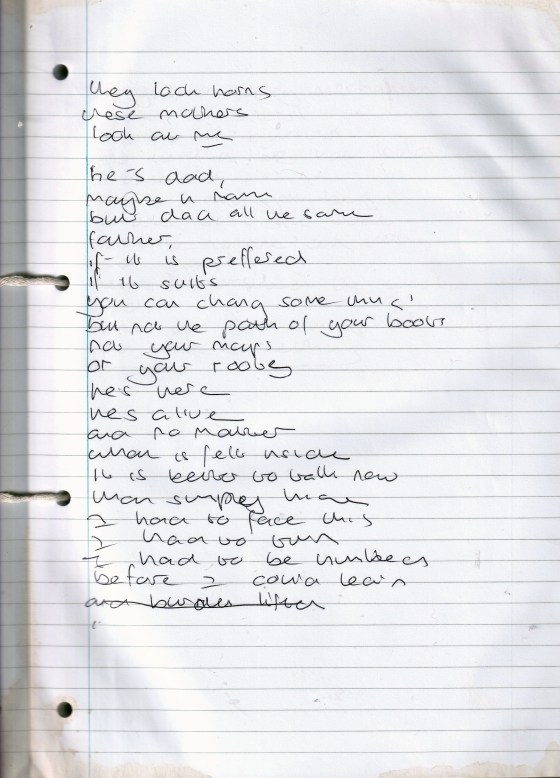 they lock horns
these mothers
look at me
he's dad,
maybe in name
but dad all the same
father,
if it is preffered
if it suits
you can chang some
but not the path of your boots
not your maps
or your
he's here
he's alive
and no matter
what is felt inside
it is better to talk now
than simply
I had to face this
I had to turn
I had to be
before I could learn
and burden lifted